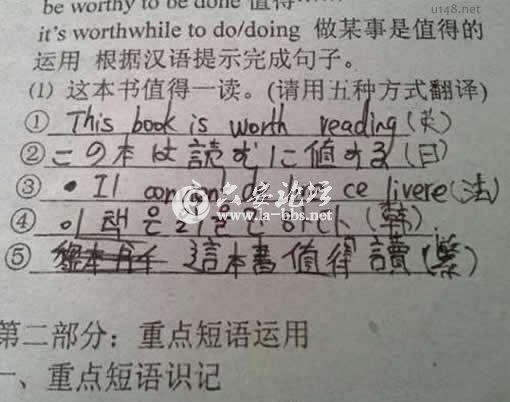 u148.net
be worthy to be done 值得……
it's worthwhile to do/doing 做某事是值得的
运用 根据汉语提示完成句子。
(1) 这本书值得一读。(请用五种方式翻译)
① This book is worth reading (英)
②この本は読むに値する(日)
③ Il ce livere (法)
④ 이 책은 (韩)
⑤ 這本書值得讀 (繁)
六安论坛
www.la-bbs.net
第二部分：重点短语运用
一、重点短语识记